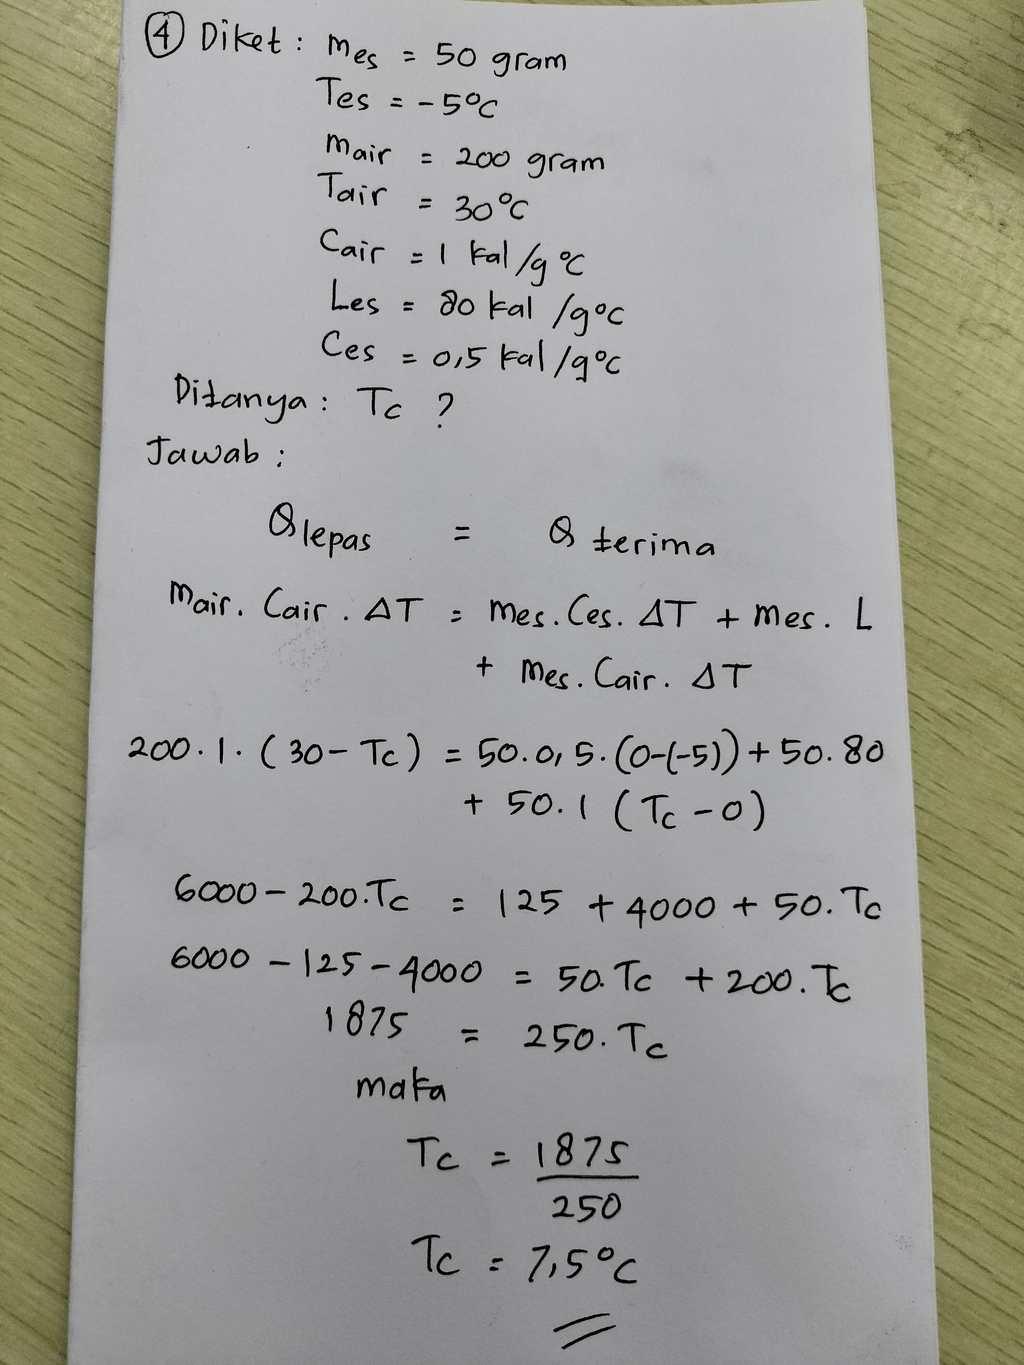 ④ Diket : mes = 50 gram
Tes = -5°C
mair = 200 gram
Tair = 30°C
Cair = 1 kal/g °C
Les = 80 kal /g°C
Ces = 0,5 kal/g°C
Ditanya : Tc ?
Jawab :
Qlepas = Q terima
Mair. Cair . ΔT = Mes. Ces. ΔT + Mes. L
+ Mes. Cair. ΔT
200.1. (30 - Tc) = 50.0,5.(0-(-5)) + 50.80
+ 50.1 (Tc - 0)
6000 - 200.Tc = 125 + 4000 + 50.Tc
6000 - 125 - 4000 = 50.Tc + 200.Tc
1875 = 250.Tc
maka
Tc = 1875
250
Tc = 7,5°C